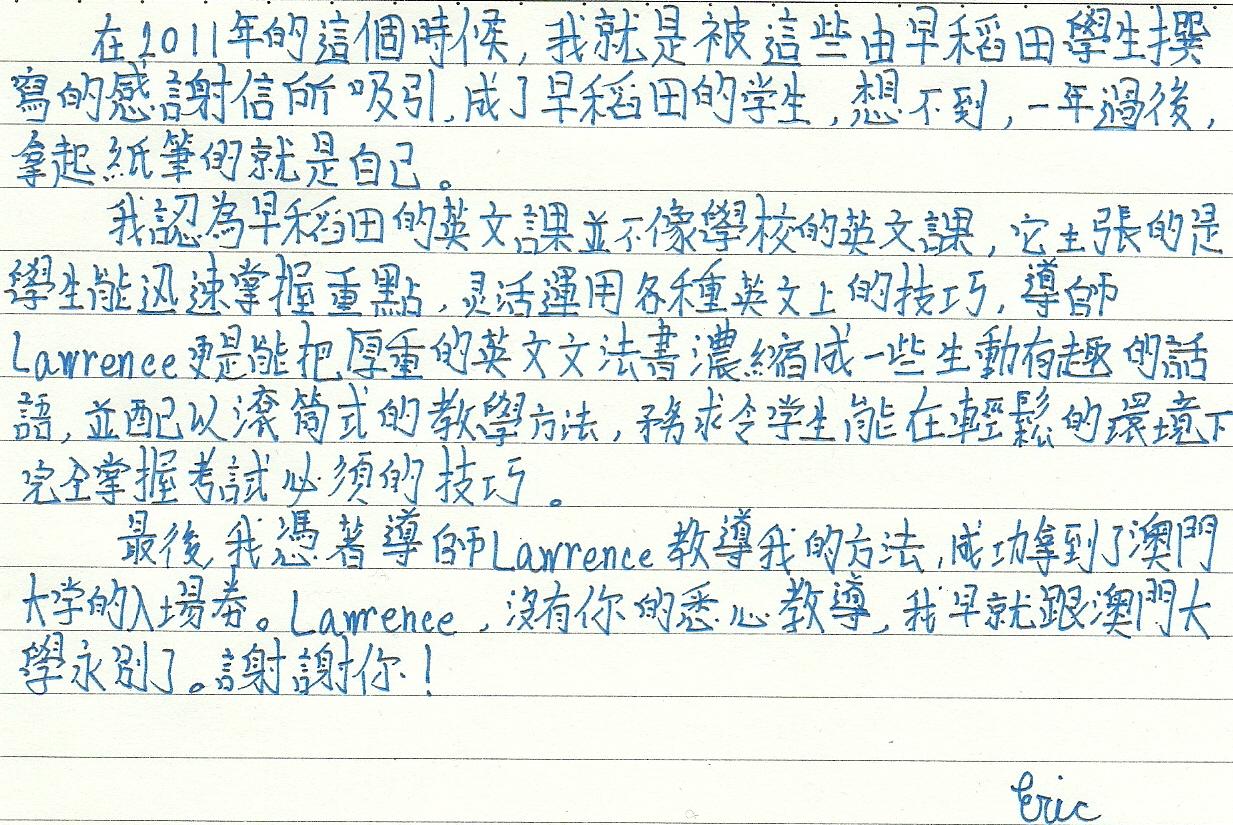 在2011年的這個時候,我就是被這些由早稻田學生撰
寫的感謝信所吸引,成了早稻田的学生,想不到,一年過後,
拿起紙筆的就是自己。
我認為早稻田的英文課並不像學校的英文課,它主張的是
學生能迅速掌握重點,灵活運用各種英文上的技巧,導師
Lawrence更是能把厚重的英文文法書濃縮成一些生動有趣的話
語,並配以滾筒式的教學方法,務求令学生能在輕鬆的環境下
完全掌握考試必須的技巧。
最後,我憑著導師Lawrence教導我的方法,成功拿到了澳門
大学的入場券。Lawrence,沒有你的悉心教導,我早就跟澳門大
學永別了。謝謝你!
Eric